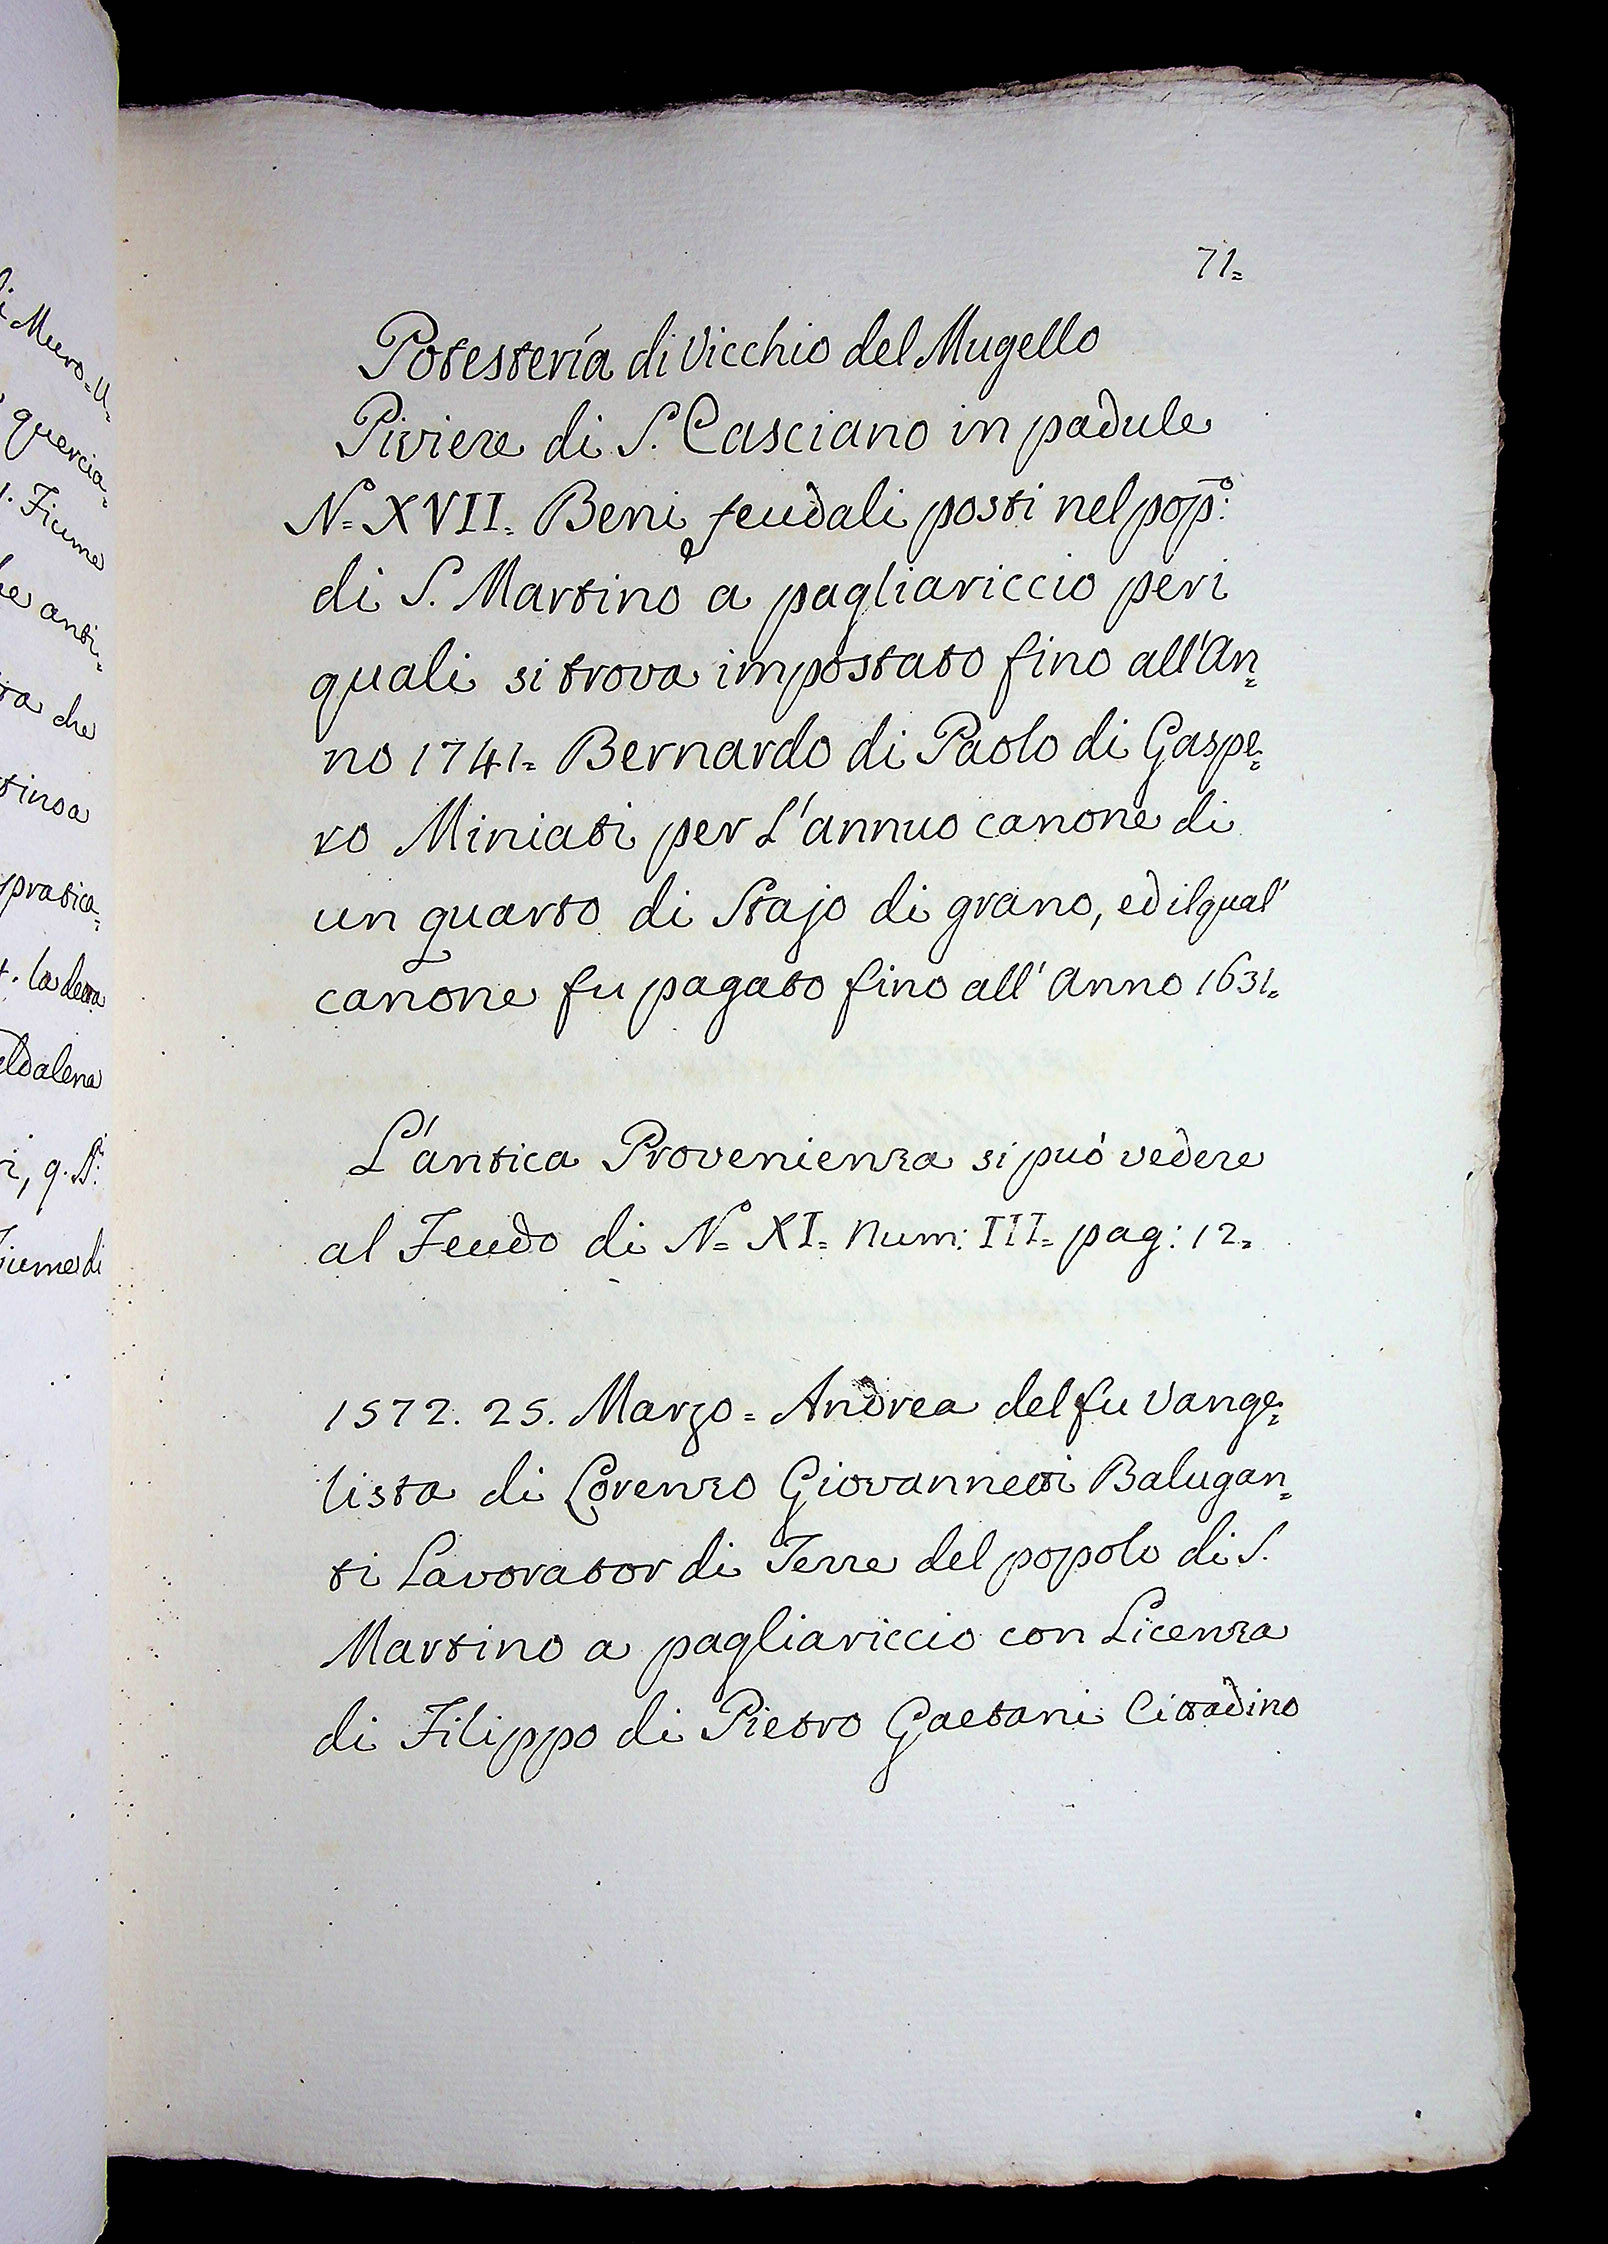 i Muro-u-
quercia-
. Fiume
he anti-
ra che
tino a
pratica-
t. la detta
eldalena
ri, q. S.
iume di
71=
Potestería di Vicchio del Mugello
Piviere di S. Casciano in padule
N.º= XVII= Beni feudali posti nel pop.º:
di S. Martino a pagliariccio per i
quali si trova impostato fino all'An=
no 1741= Bernardo di Paolo di Gaspe=
ro Miniati per L'annuo canone di
un quarto di Stajo di grano, ed il qual'
canone fu pagato fino all' Anno 1631=
L'antica Provenienza si può vedere
al Feudo di N.º= XI= Num: III= pag: 12=
1572. 25. Marzo = Andrea del fu Vange=
lista di Lorenzo Giovannetti Balugan=
ti Lavorator di Terre del popolo di S.
Martino a pagliariccio con Licenza
di Filippo di Pietro Gaetani Cittadino